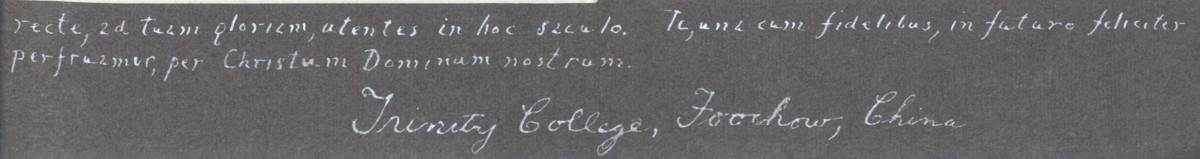 recte, ad tuam gloriam, utentes in hoc saeculo. Te, una cum fidelibus, in futuro feliciter
perfruamur, per Christum Dominum nostrum.
Trinity College, Foochow, China